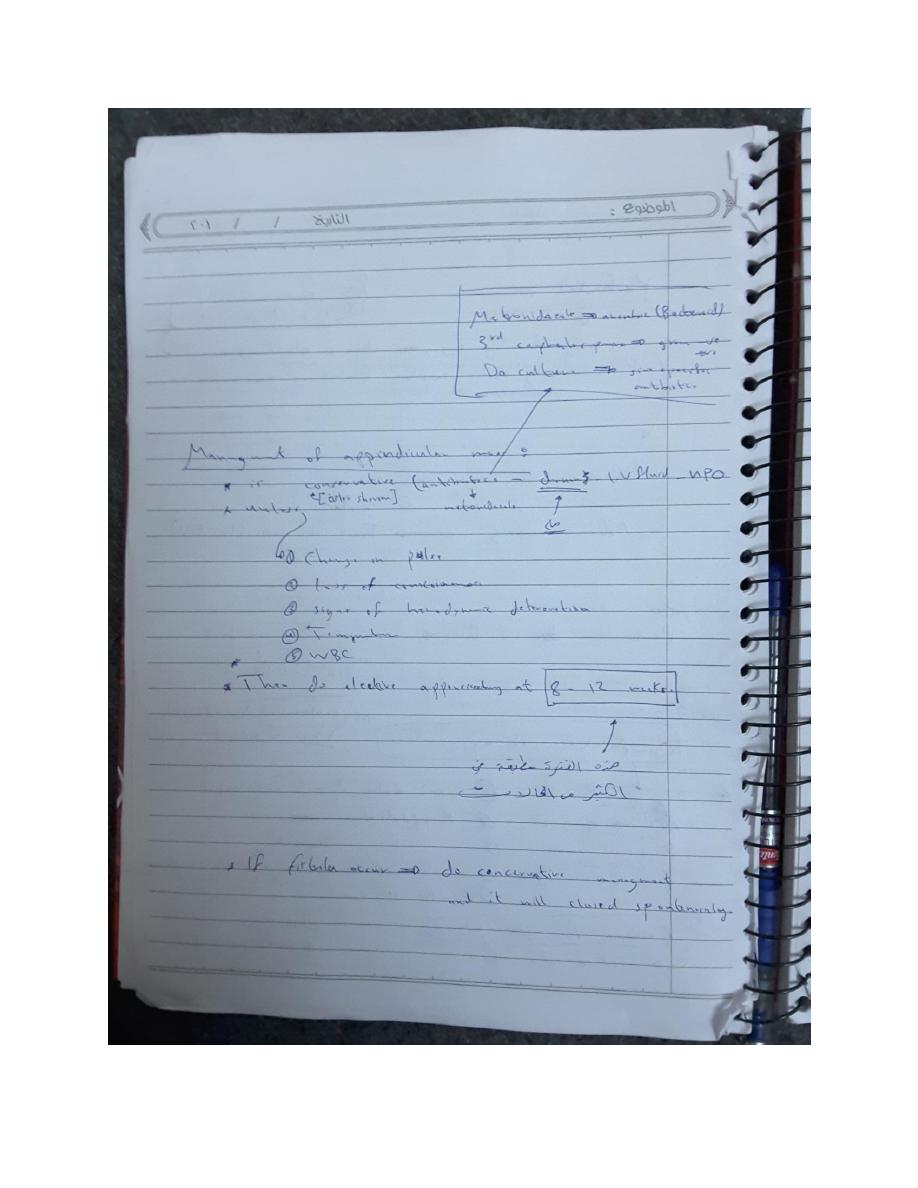 الموضوع :
التاريخ / / ٢٠١
Metronidazole ⇒ (Bacteroid)
3rd ⇒ gram -ve
Do culture ⇒ give specific
antibiotic.
Managment of appendicular mass :
* is conservative (antibiotics - I.V fluid - NPO
metronidazole
* unless
① Change in pulse
② Loss of consciousness
③ signs of hemodynamic deterioration
④ Temperature
⑤ WBC
*
* Then do elective appendectomy at 8 - 12 weeks.
هذه الفترة مطبقة في
الكثير من الحالات
* If fistula occur ⇒ do concervative managment
and it will closed spontenously.